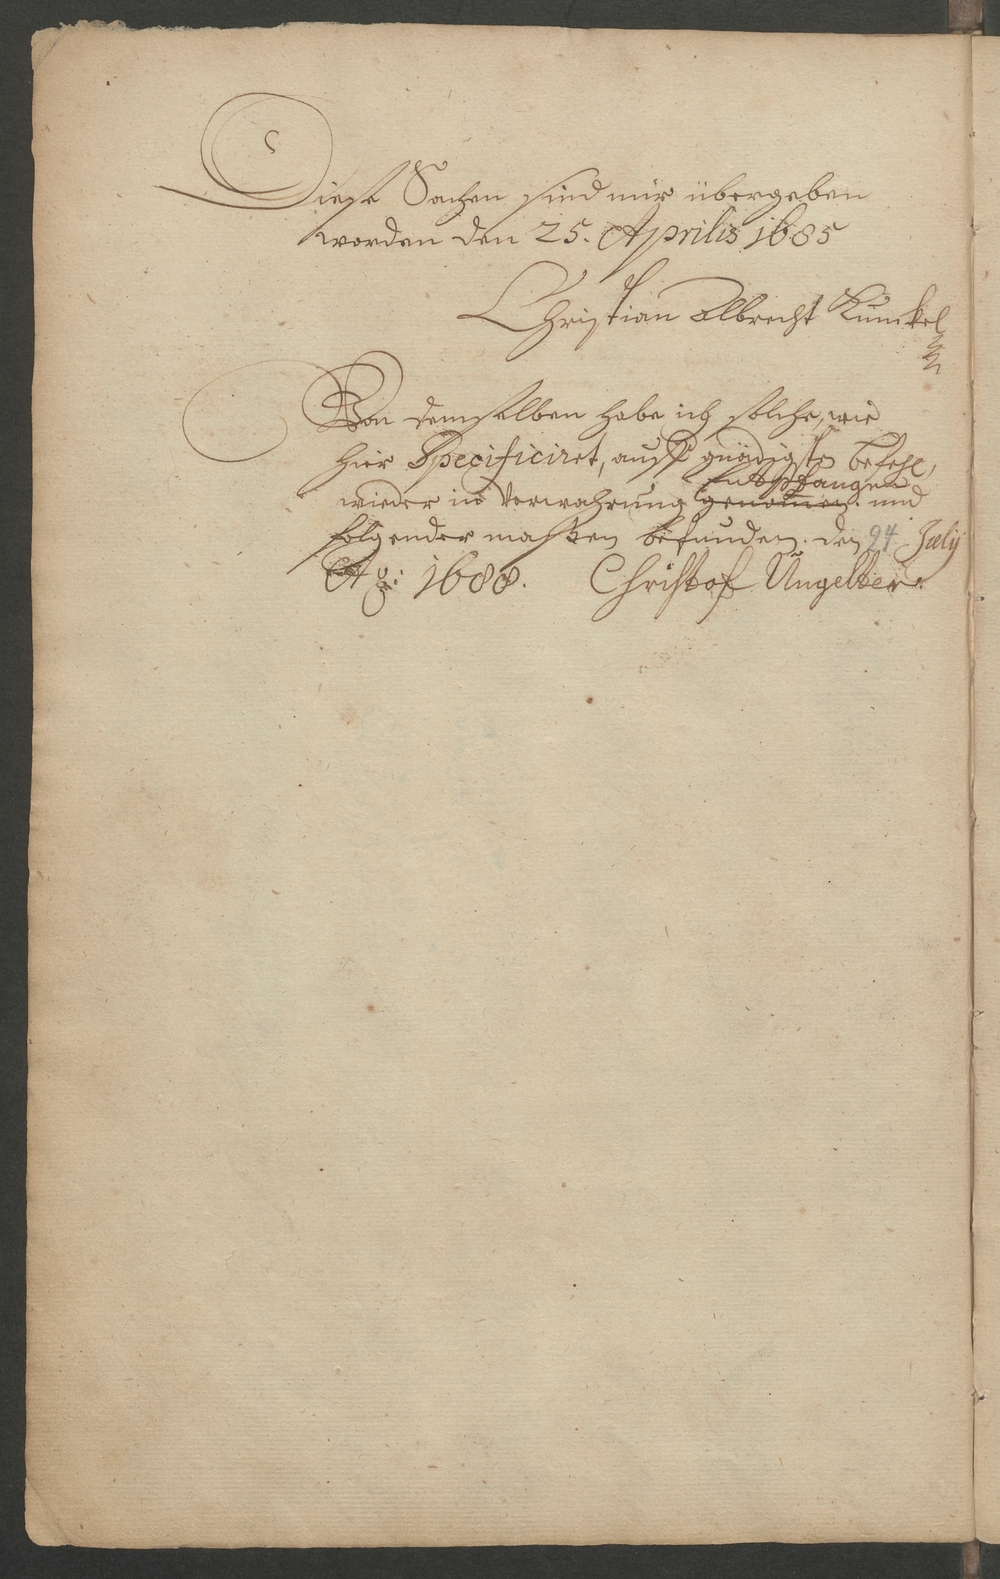 Diese Sachen sind mir übergeben
worden den 25. Aprilis 1685
Christian Albrecht Kunckel
Von demselben habe ich solche, wie
hier Specificiret, auff gnädigsten befehl,
Entpfangen
wieder in Verwahrung genomen. und
folgender massen befunden. den 24 July
Aō: 1688. Christof Ungelter.